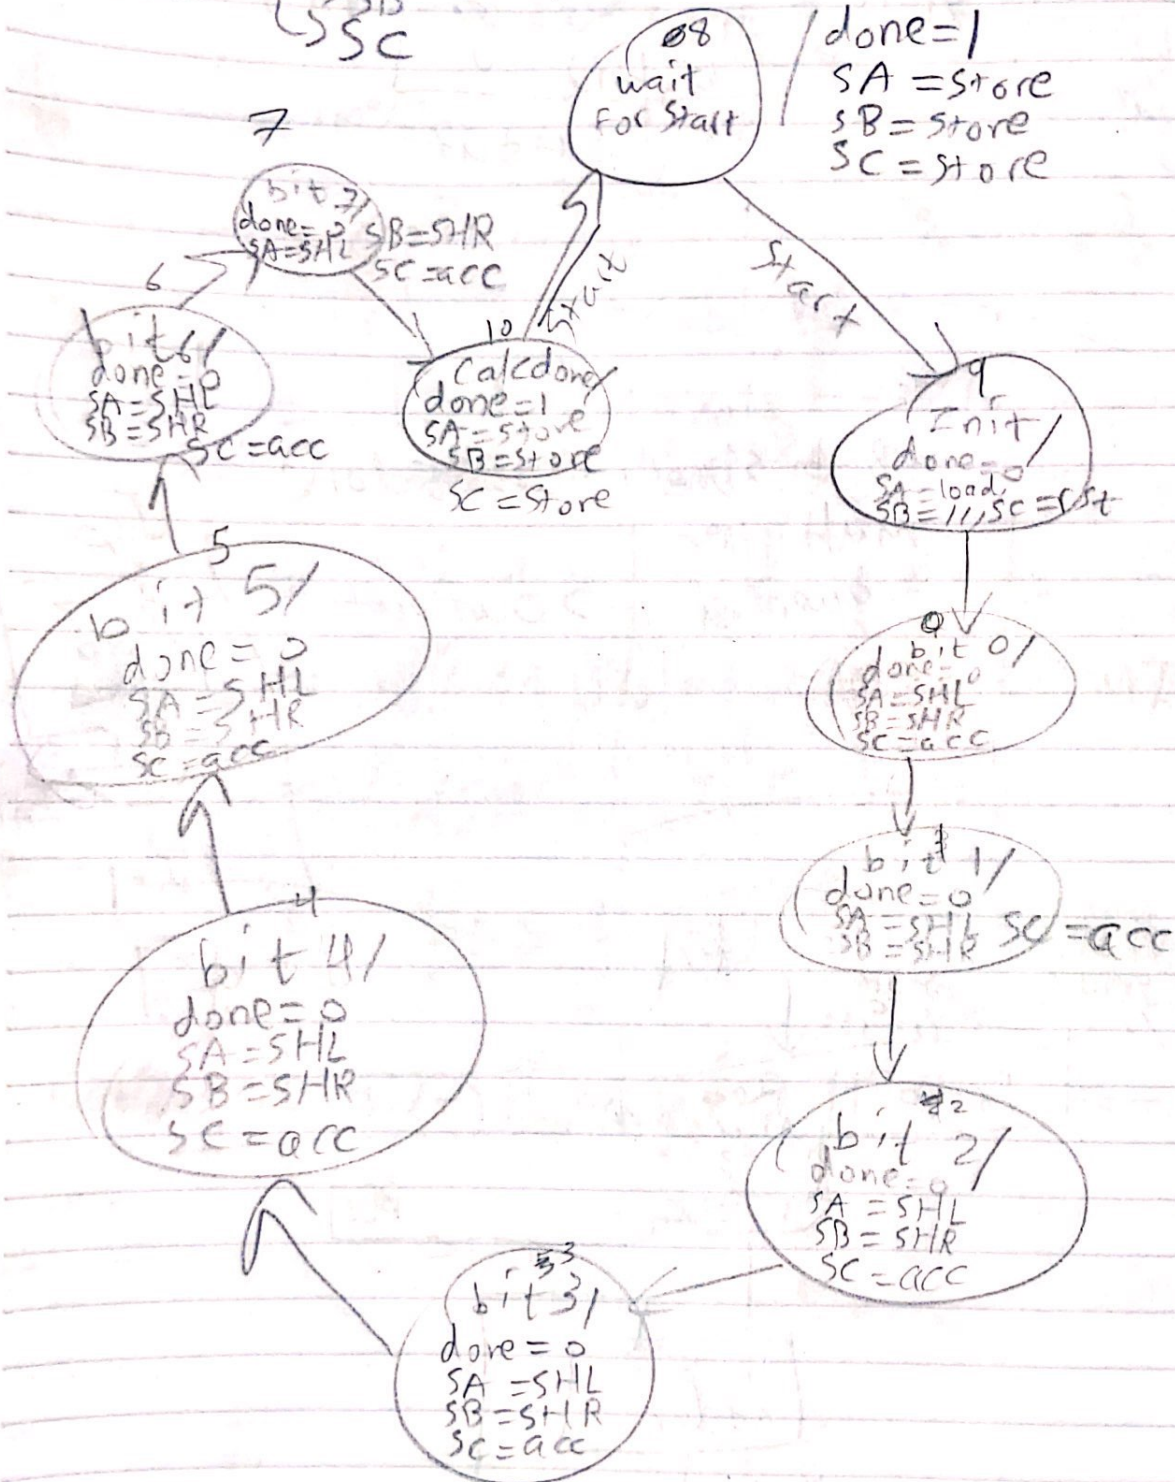 SC
08
wait
For Start
/ done=1
SA=Store
SB=Store
SC=Store
7
bit 7/
done=0
SA=SHL
SB=SHR
SC=acc
start
6
bit 6/
done=0
SA=SHL
SB=SHR
SC=acc
10
Calcdone/
done=1
SA=store
SB=store
SC=Store
9
Init/
done=0
SA=load,
SB=,,,SC=rst
5
bit 5/
done=0
SA=SHL
SB=SHR
SC=acc
0
bit 0/
done=0
SA=SHL
SB=SHR
SC=acc
bit 1/
done=0
SA=SHL
SB=SHR SC=acc
4
bit 4/
done=0
SA=SHL
SB=SHR
SC=acc
2
bit 2/
done=0
SA=SHL
SB=SHR
SC=acc
3
bit 3/
done=0
SA=SHL
SB=SHR
SC=acc